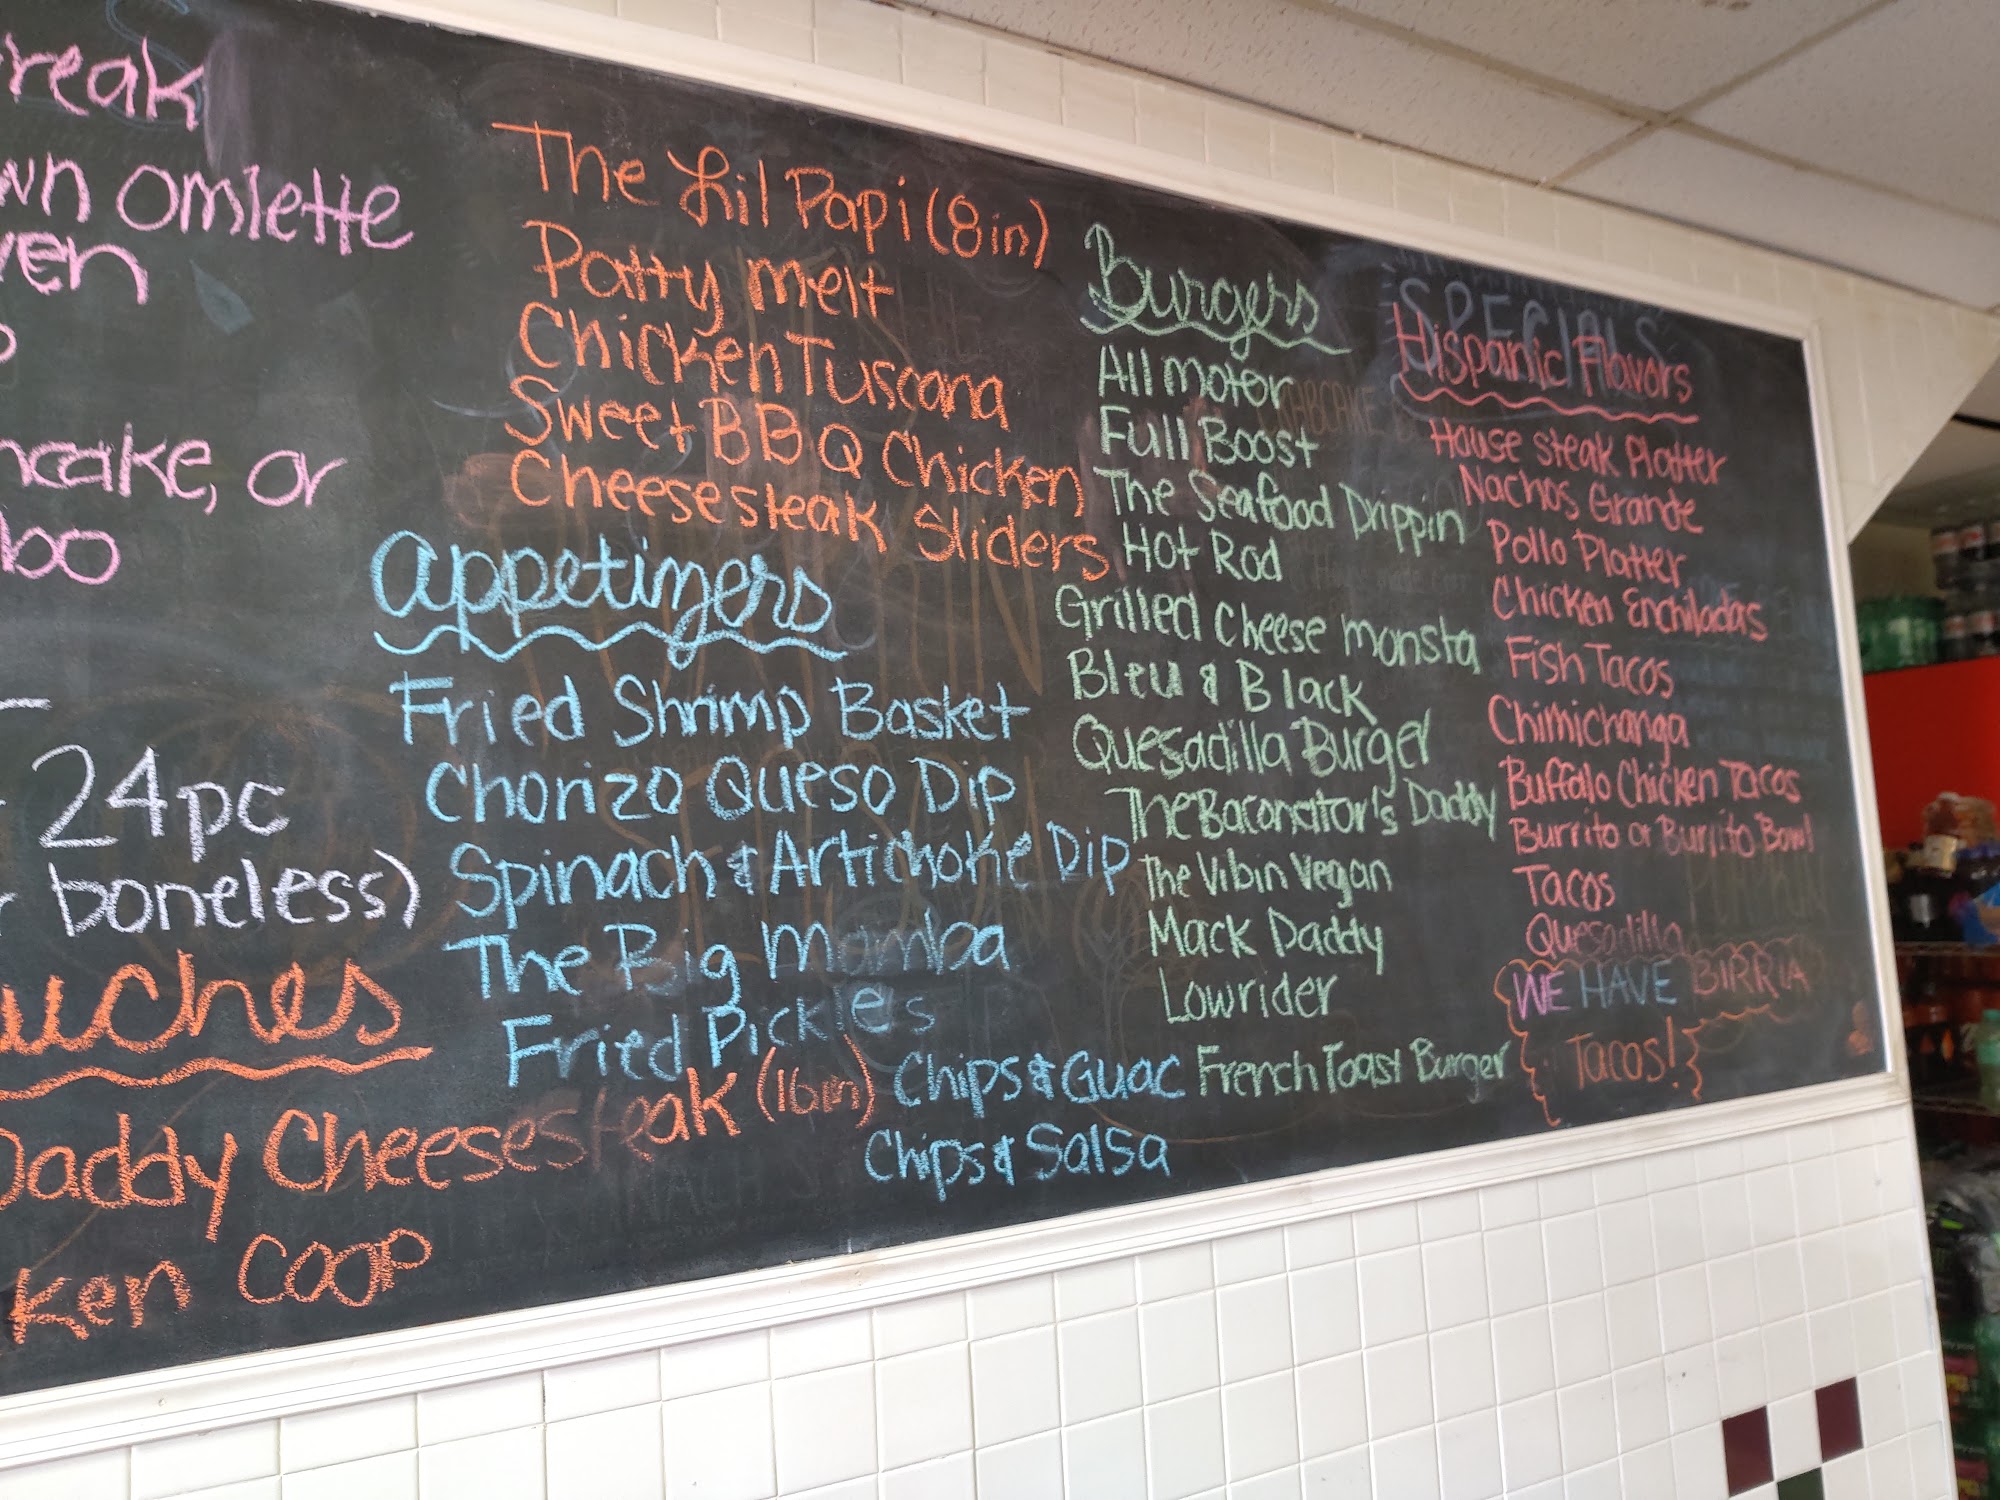 reak
wn omlette
ven
ncake, or
bo
24pc
boneless)
uches
Daddy Cheesesteak (16in)
ken COOP
The Lil Papi (8in)
Patty melt
Chicken Tuscana
Sweet BBQ Chicken
Cheesesteak Sliders
Appetizers
Fried Shrimp Basket
Chorizo Queso Dip
Spinach & Artichoke Dip
The Big Mamba
Fried Pickles
Chips & Guac
Chips & Salsa
Burgers
All motor
Full Boost
The Seafood Drippin
Hot Rod
Grilled Cheese Monsta
Bleu & Black
Quesadilla Burger
The Baconator's Daddy
The Vibin Vegan
Mack Daddy
Lowrider
French Toast Burger
SPECIALS
Hispanic Flavors
House steak Platter
Nachos Grande
Pollo Platter
Chicken Enchiladas
Fish Tacos
Chimichanga
Buffalo Chicken Tacos
Burrito or Burrito Bowl
Tacos
Quesadilla
WE HAVE BIRRIA
Tacos!